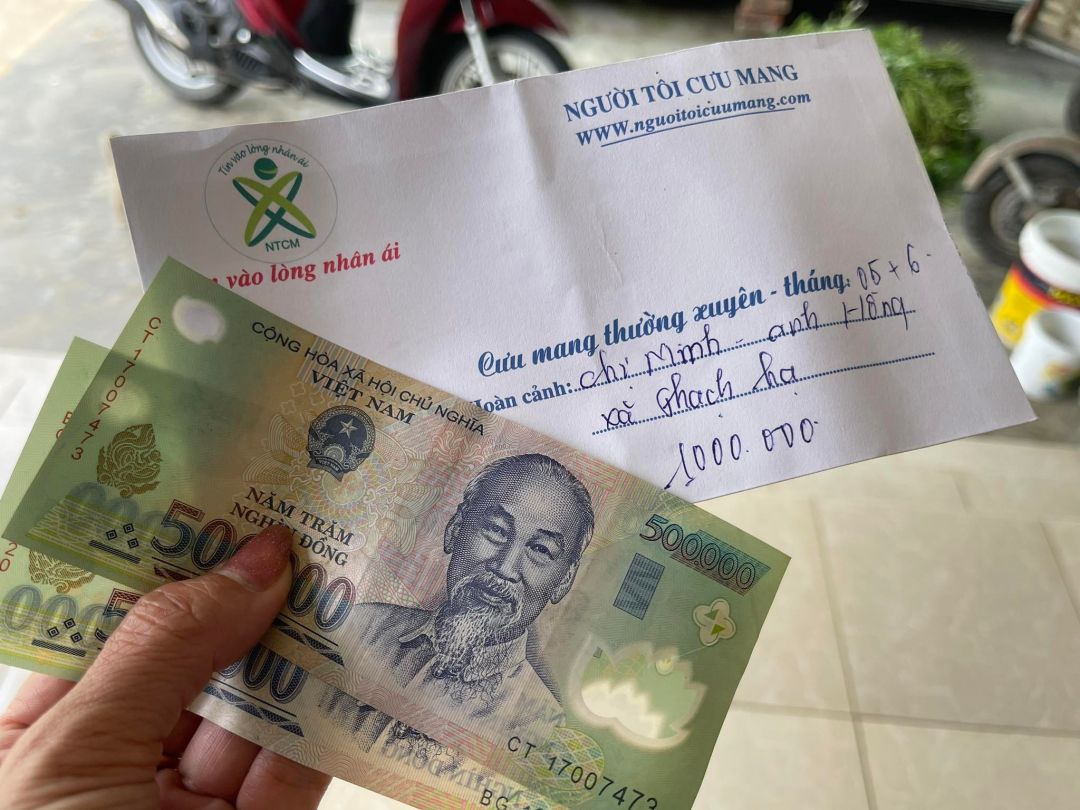 NGƯỜI TÔI CƯU MANG
WWW.nguoitoicuumang.com
Tin vào lòng nhân ái
NTCM
vào lòng nhân ái
Cưu mang thường xuyên - tháng: 05 + 6
Hoàn cảnh: chị Minh - anh Hồng
xã Thạch hạ
1000.000
CỘNG HÒA XÃ HỘI CHỦ NGHĨA
VIỆT NAM
NĂM TRĂM
NGHÌN ĐỒNG
500000
500.000
CT 17007473
CT 17007473
BG